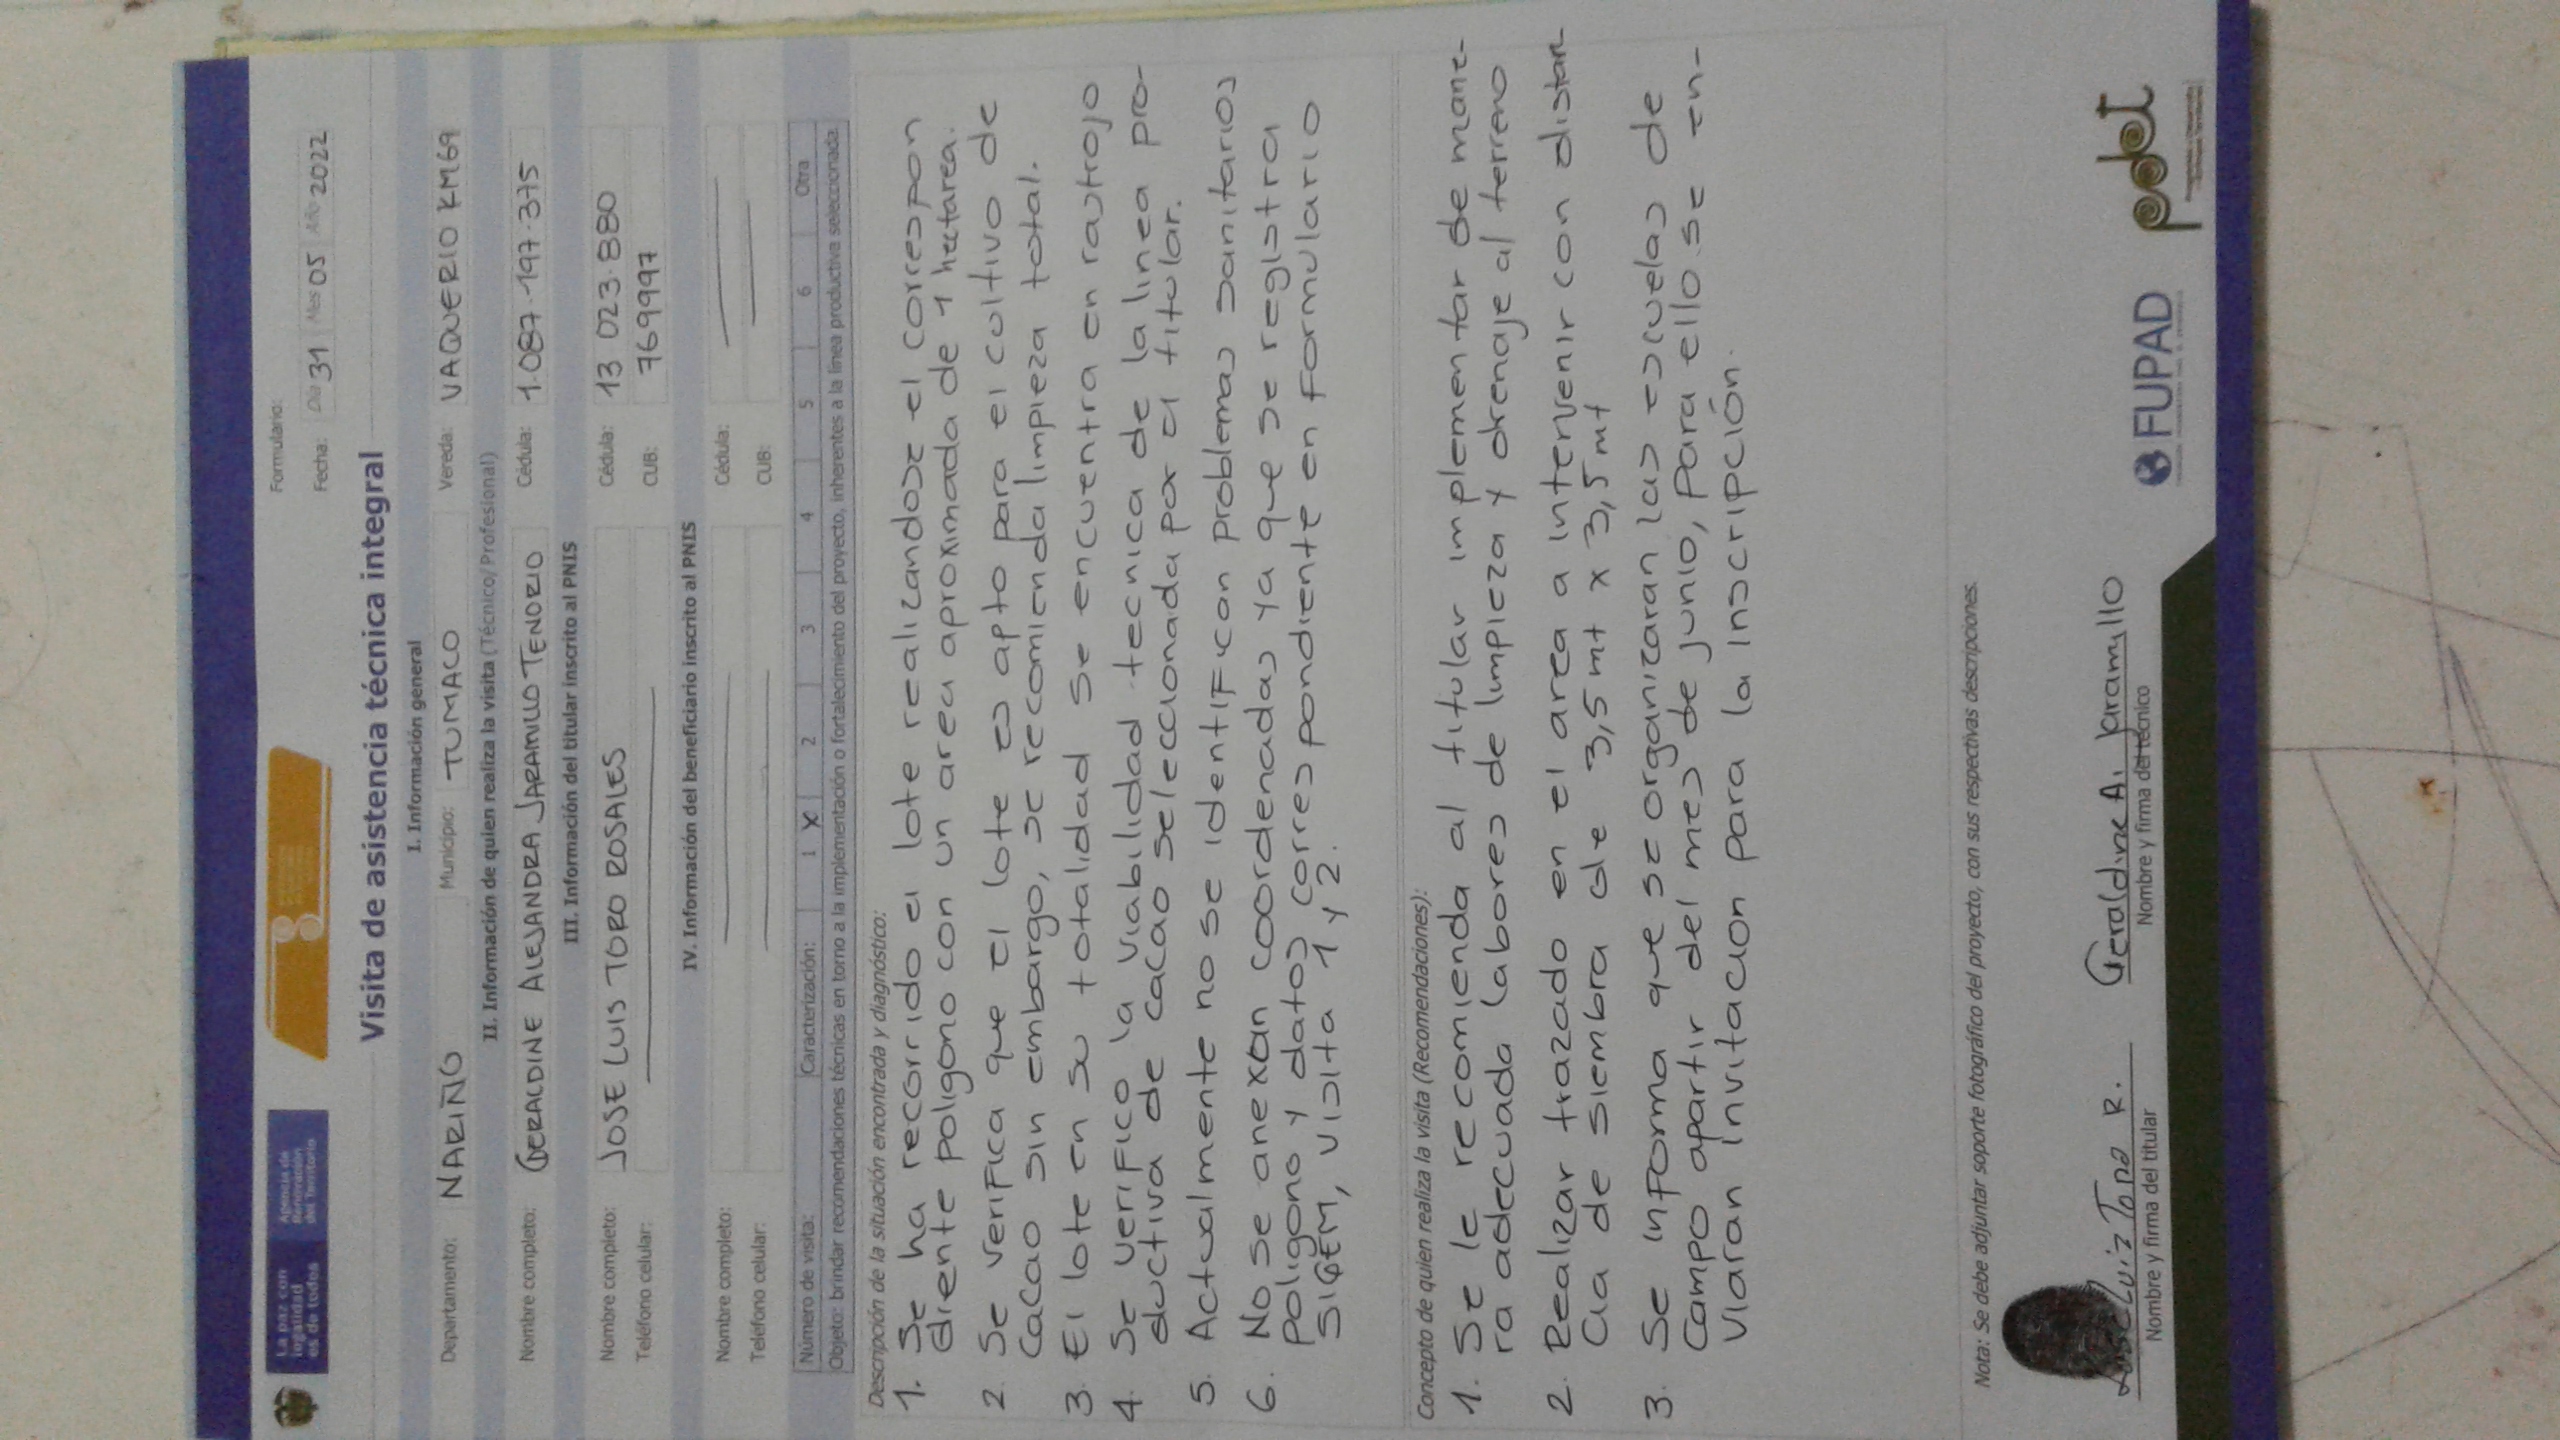 La paz con
legalidad
es de todos
Agencia de
Renovación
del Territorio
Formulario:
Fecha: Día 31 Mes 05 Año 2022
Visita de asistencia técnica integral
I. Información general
Departamento: NARIÑO Municipio: TUMACO Vereda: VAQUERIO KM69
II. Información de quien realiza la visita (Técnico/Profesional)
Nombre completo: GERALDINE ALEJANDRA JARAMILLO TENORIO Cédula: 1.087.197.375
III. Información del titular inscrito al PNIS
Nombre completo: JOSE LUIS TORO ROSALES Cédula: 13 023.880
Teléfono celular: CUB: 769997
IV. Información del beneficiario inscrito al PNIS
Nombre completo: Cédula:
Teléfono celular: CUB:
Número de visita: Caracterización: 1 X 2 3 4 5 6 Otra
Objeto: brindar recomendaciones técnicas en torno a la implementación o fortalecimiento del proyecto, inherentes a la línea productiva seleccionada.
Descripción de la situación encontrada y diagnóstico:
1. Se ha recorrido el lote realizandose el correspon
diente poligono con un area aproximada de 1 hectarea.
2. Se verifica que el lote es apto para el cultivo de
cacao sin embargo, se recomienda limpieza total.
3. El lote en su totalidad se encuentra en rastrojo
4. Se verifico la viabilidad tecnica de la linea pro-
ductiva de cacao seleccionada por el titular.
5. Actualmente no se identifican problemas sanitarios
6. No se anexan coordenadas ya que se registra
poligono y datos correspondiente en formulario
SIGEM, visita 1 y 2.
Concepto de quien realiza la visita (Recomendaciones):
1. Se le recomienda al titular implementar de mane-
ra adecuada labores de limpieza y drenaje al terreno
2. Realizar trazado en el area a intervenir con distan
cia de siembra de 3,5 mt x 3,5 mt
3. Se informa que se organizaran las escuelas de
campo apartir del mes de junio, para ello se en-
viaran invitacion para la inscripción.
Nota: Se debe adjuntar soporte fotográfico del proyecto, con sus respectivas descripciones.
Jose Luiz Toro R.
Nombre y firma del titular
Geraldine A. Jaramillo
Nombre y firma del técnico
FUPAD
pdet